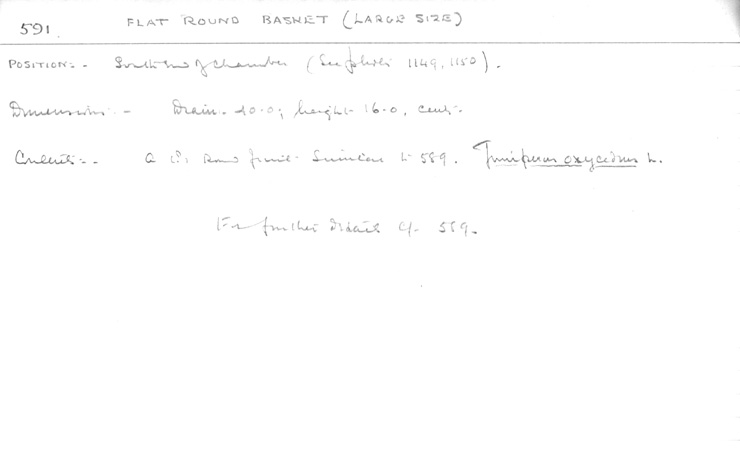 591. FLAT ROUND BASKET (LARGE SIZE)
POSITION: - South end of chamber (See photos 1149, 1150).
Dimensions: - Diam. 40.0; height 16.0, cent:
Contents: - a dried fruit similar to 589. Juniperus oxycedrus L.
For further details cf. 589.